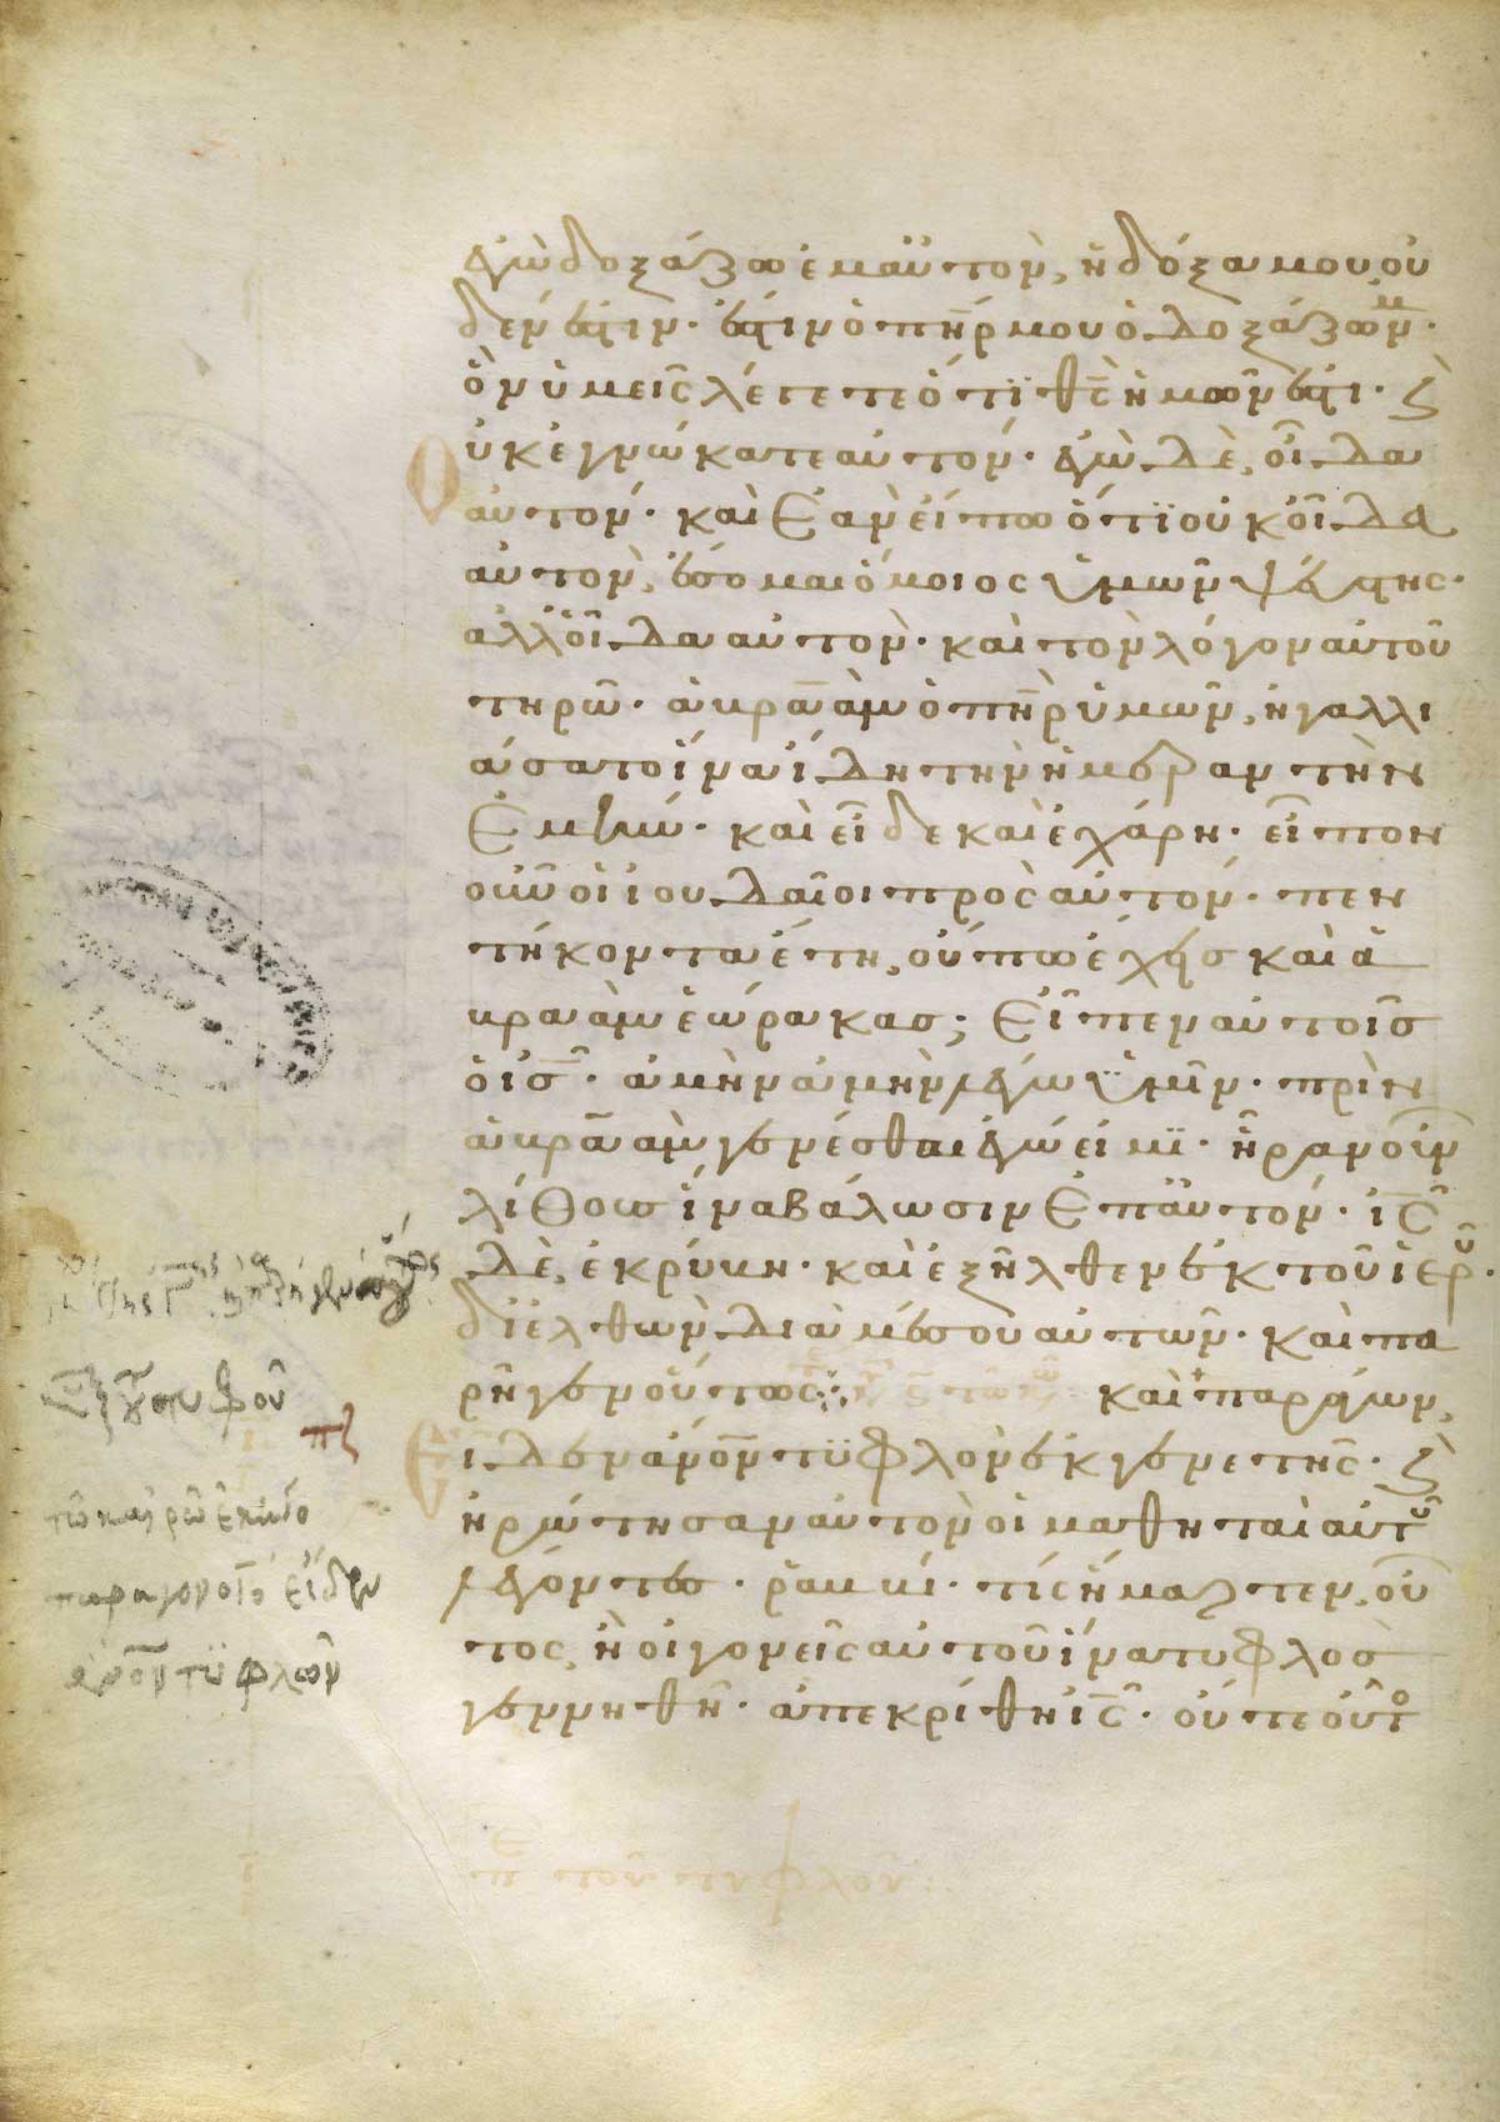 ἐγὼ δοξάζω ἐμαὐτὸν, ἡ δόξα μου, οὐ
δέν ἐστιν· ἔστιν ὁ πη̅ρ μου ὁ δοξάζων μ·
ὃν ὑμεῖς λέγετε ὅτϊ θς̅ ἡμῶν ἐστι· ϗ
ὐκ ἐγνώκατε αὐτόν· ἐγὼ δὲ, οἶδα
αὐτόν· καὶ ἐὰν εἴπω ὅτϊ οὐκ οἶδα
αὐτὸν, ἔσομαι ὅμοιος ὑμῶν ψεύστης·
ἀλλ' οἶδα αὐτὸν· καὶ τὸν λόγον αὐτοῦ
τηρῶ· ἀβραὰμ ὁ πη̅ρ ὑμῶν, ἠγαλλι
άσατο ἵνα ἴδη τὴν ἡμέραν τὴν
ἐμήν· καὶ εἶδε καὶ ἐχάρη· εἶπον
οὖν οἱ ἰουδαῖοι πρὸς αὐτόν· πεν
τήκοντα ἔτη, οὔπω ἔχεις καὶ ἀ
βραὰμ ἑώρακας; Εἶπεν αὐτοῖς
ὁ ις̅· ἀμὴν ἀμὴν λέγω ὑμῖν· πρὶν
ἀβραὰμ γενέσθαι ἐγώ εἰμϊ· ἦραν οὖν
λίθους ἵνα βάλωσιν ἐπ' αὐτόν· ις̅
δὲ, ἐκρύβη· καὶ ἐξῆλθεν ἐκ τοῦ ἱερ̅·
δϊελθὼν διὰ μέσου αὐτῶν· καὶ πα
ρῆγεν οὕτως: καὶ παράγων,
Εἶδεν ἄνον̅ τϋφλὸν ἐκ γενετῆς· ϗ
ἠρώτησαν αὐτὸν οἱ μαθηταὶ αὐτ
λέγοντες· ῥαββί· τίς ἥμαρτεν, οὗ
τος, ἢ οἱ γονεῖς αὐτοῦ ἵνα τυφλὸς
γεννηθῆ· ἀπεκρίθη ις̅· οὔτε οὗτο
πζ
τῶ καιρῶ ἐκείνο
παράγον
εἶδεν
ἄνον̅ τϋφλὸν
τοῦ τυφλοῦ: